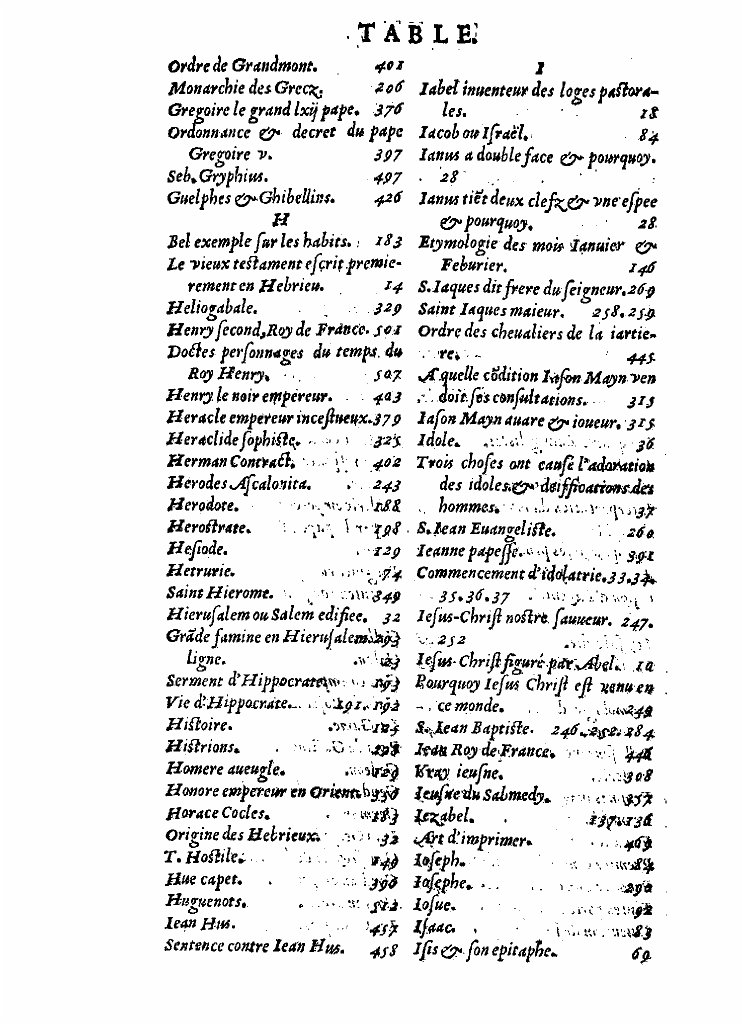 TABLE.
Ordre de Grandmont. 401
Monarchie des Grecz. 206
Gregoire le grand lxij pape. 376
Ordonnance & decret du pape
Gregoire v. 397
Seb. Gryphius. 497
Guelphes & Ghibellins. 426
H
Bel exemple ſur les habits. 183
Le vieux teſtament eſcrit premie-
rement en Hebrieu. 14
Heliogabale. 329
Henry ſecond, Roy de France. 501
Doctes perſonnages du temps du
Roy Henry. 507
Henry le noir empereur. 403
Heracle empereur inceſtueux. 379
Heraclide ſophiſte. 325
Herman Contract. 402
Herodes Aſcalonita. 243
Herodote. 188
Heroſtrate. 198
Heſiode. 129
Hetrurie. 74
Saint Hierome. 349
Hieruſalem ou Salem edifiee. 32
Grāde famine en Hieruſalem
ligne.
Serment d'Hippocrate 193
Vie d'Hippocrate. 191. 192
Hiſtoire.
Hiſtrions.
Homere aueugle. 129
Honore empereur en Orient. 350
Horace Cocles. 183
Origine des Hebrieux. 32
T. Hoſtile. 149
Hue capet. 396
Huguenots. 512
Iean Hus. 457
Sentence contre Iean Hus. 458
I
Iabel inuenteur des loges paſtora-
les. 18
Iacob ou Iſraël. 84
Ianus a double face & pourquoy.
28
Ianus tiēt deux clefz & vne eſpee
& pourquoy. 28
Etymologie des mois Ianuier &
Feburier. 146
S. Iaques dit frere du ſeigneur. 269
Saint Iaques maieur. 258. 259
Ordre des cheualiers de la iartie-
re. 445
A quelle cōdition Iaſon Mayn ven
doit ſes conſultations. 315
Iaſon Mayn auare & ioueur. 315
Idole. 36
Trois choſes ont cauſé l'adoration
des idoles & deifications des
hommes. 37
S. Iean Euangeliſte. 260
Ieanne papeſſe. 391
Commencement d'idolatrie. 33. 34.
35. 36. 37
Ieſus-Chriſt noſtre ſauueur. 247.
252
Ieſus-Chriſt figuré par Abel. 10
Pourquoy Ieſus Chriſt eſt venu en
ce monde. 249
S. Iean Baptiſte. 246. 252. 284
Iean Roy de France. 446
Vray ieuſne. 308
Ieuſne du Sabmedy. 357
Iezabel. 137. 136
Art d'imprimer. 469
Ioſeph. 84
Ioſephe. 292
Ioſue. 92
Iſaac. 83
Iſis & ſon epitaphe. 69